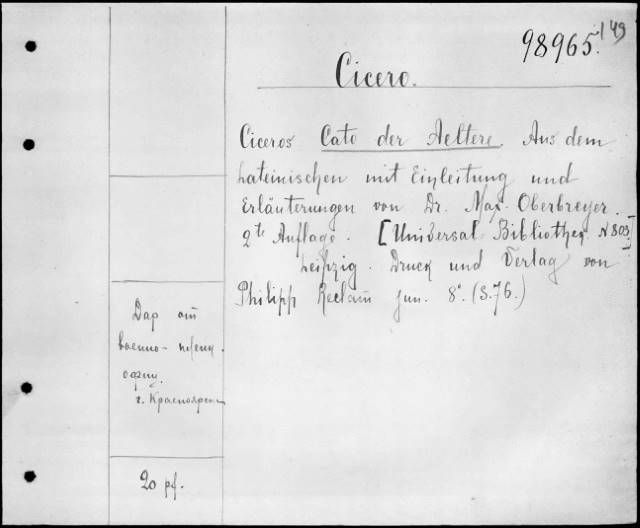 98965. 149
Cicero.
Ciceros Cato der Aeltere. Aus dem
Lateinischen mit Einleitung und
Erläuterungen von Dr. Max Oberbreyer.
2te Auflage. [Universal-Bibliothek N 803]
Leipzig. Druck und Verlag von
Philipp Reclam jun. 8°. (S. 76.)
Дар от
военно-плен.
офиц.
г. Красноярск
20 pf.